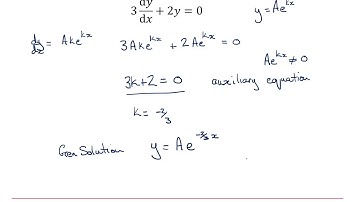 3 dy/dx + 2y = 0   y = Ae^{kx}
dy/dx = Ake^{kx}   3Ake^{kx} + 2Ae^{kx} = 0
Ae^{kx} ≠ 0
3k+2 = 0   auxiliary equation
k = -2/3
Gen Solution   y = Ae^{-2/3 x}